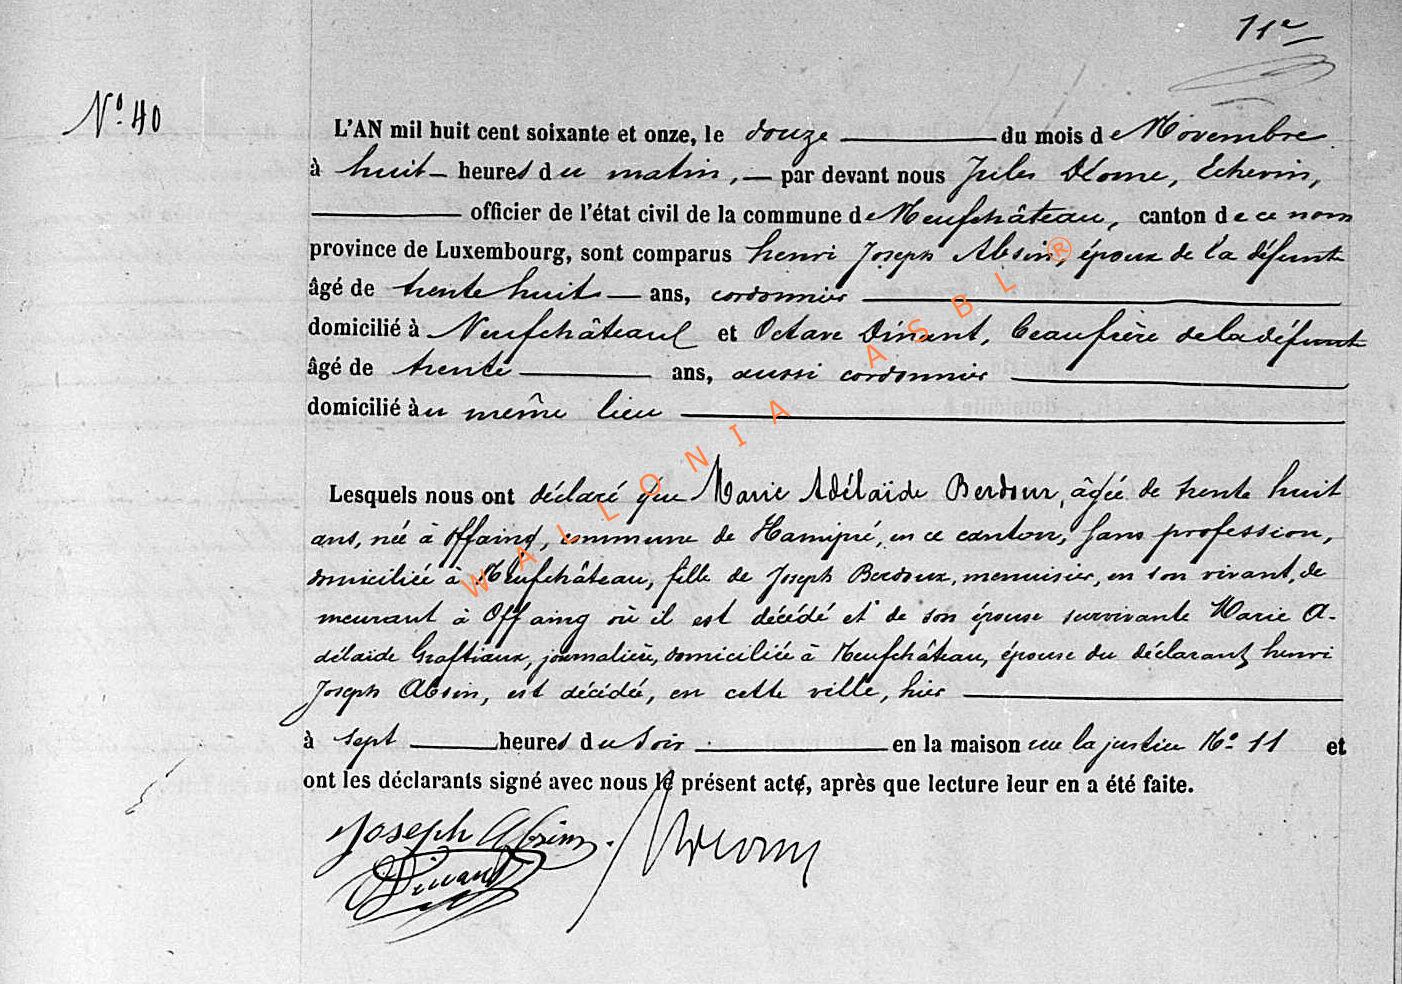 11e
No. 40
L'AN mil huit cent soixante et onze, le douze du mois de Novembre
à huit heures du matin, par devant nous Jules Dlome, Echevin,
officier de l'état civil de la commune de Neufchâteau, canton de ce nom
province de Luxembourg, sont comparus henri Joseph Absin, époux de la défunte
âgé de trente huit ans, cordonnier
domicilié à Neufchâteau et Octave Dinant, beaufrère de la défunte
âgé de trente ans, aussi cordonnier
domicilié au même lieu
Lesquels nous ont déclaré que Marie Adélaïde Berdoux, âgée de trente huit
ans, née à Offaing, commune de Hamipré, en ce canton, sans profession,
domiciliée à Neufchâteau, fille de Joseph Berdoux, menuisier, en son vivant, de
meurant à Offaing où il est décédé et de son épouse survivante Marie A-
délaïde Graftiaux, journalière, domiciliée à Neufchâteau, épouse du déclarant henri
Joseph Absin, est décédée, en cette ville, hier
à sept heures du soir en la maison rue la justice No. 11 et
ont les déclarants signé avec nous le présent acte, après que lecture leur en a été faite.
Joseph Absin.
Dinant
WALLONIA ASBL ®